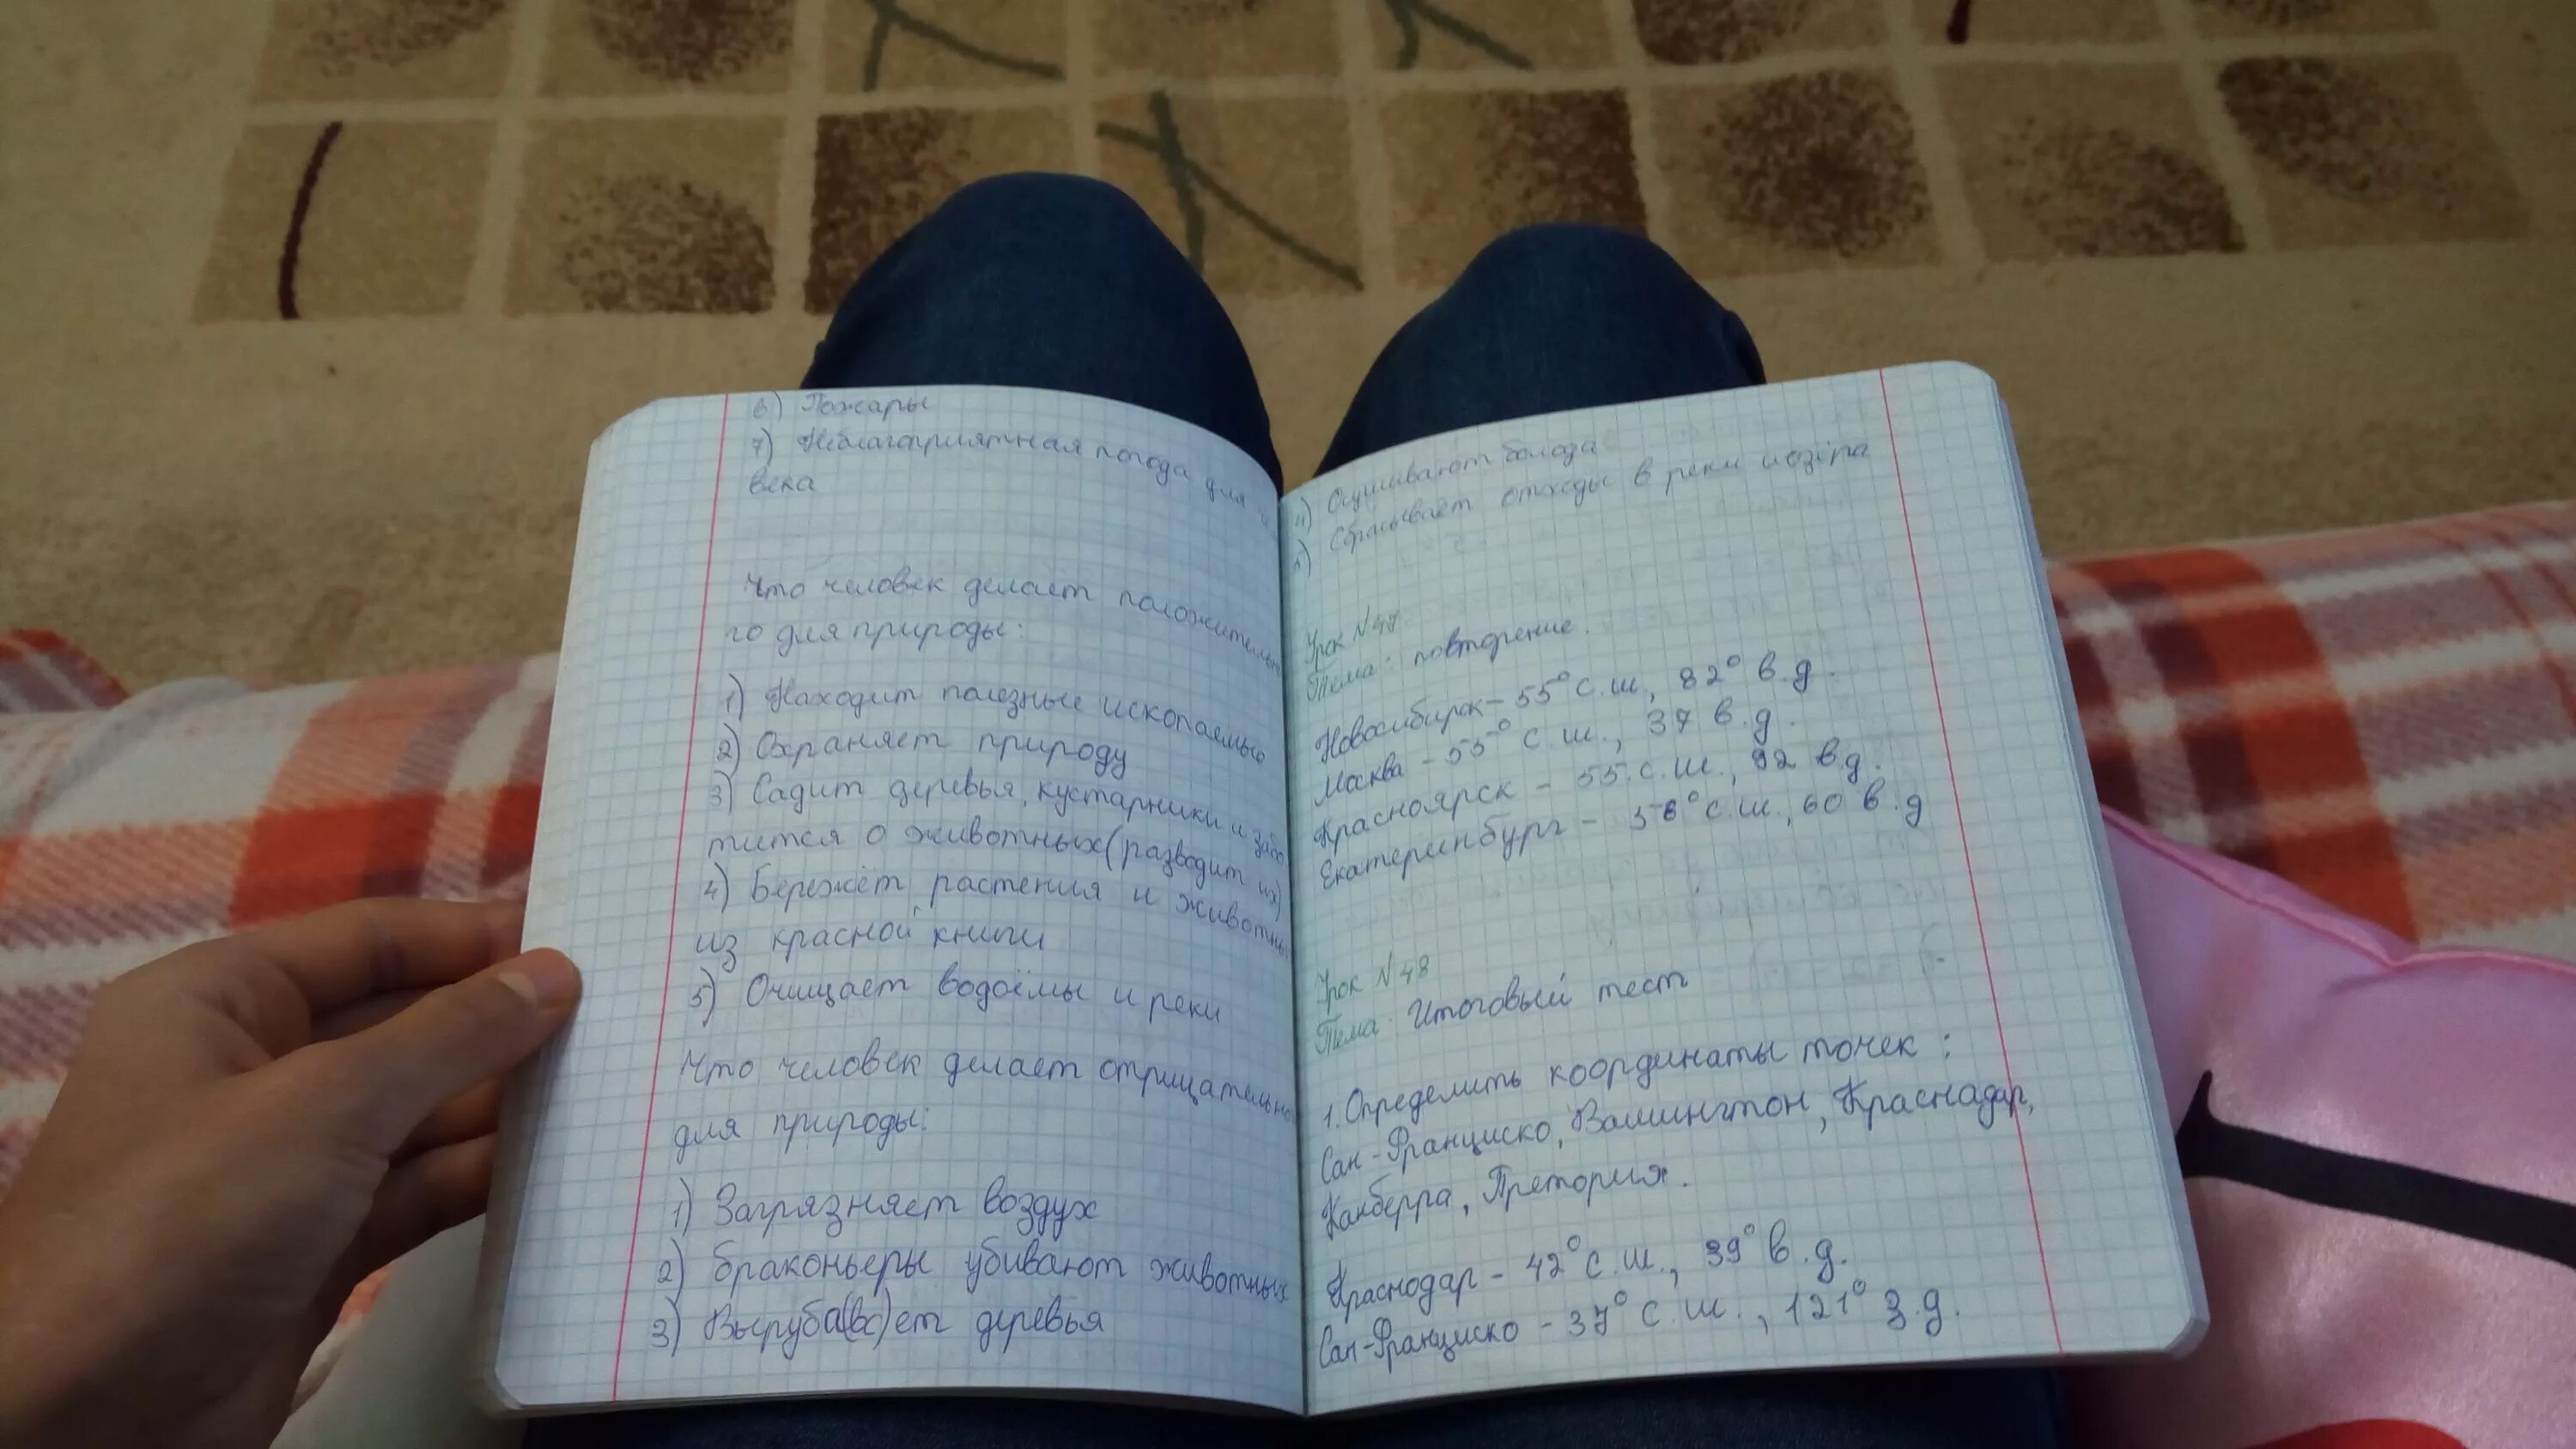 6) Пожары
7) Неблагоприятная погода для
века
Что человек делает положительно
го для природы:
1) Находит полезные ископаемые
2) Охраняет природу
3) Садит деревья, кустарники и забо
тится о животных (разводит их)
4) Бережёт растения и животных
из красной книги
5) Очищает водоёмы и реки
Что человек делает отрицательно
для природы:
1) Загрязняет воздух
2) браконьеры убивают животных
3) Выруба(вс)ет деревья
4) Осушивают болота
5) Сбрасывает отходы в реки и озёра
Урок №47
Тема: повторение.
Новосибирск - 55° с.ш., 82° в.д.
Москва - 55° с.ш., 37 в.д.
Красноярск - 55. с.ш., 92 в.д.
Екатеринбург - 56° с.ш., 60 в.д
Урок №48
Тема: Итоговый тест
1. Определить координаты точек:
Сан-Франциско, Вашингтон, Краснадар,
Канберра, Претория.
Краснодар - 42° с.ш., 39° в.д.
Сан-Франциско - 37° с.ш., 121° з.д.